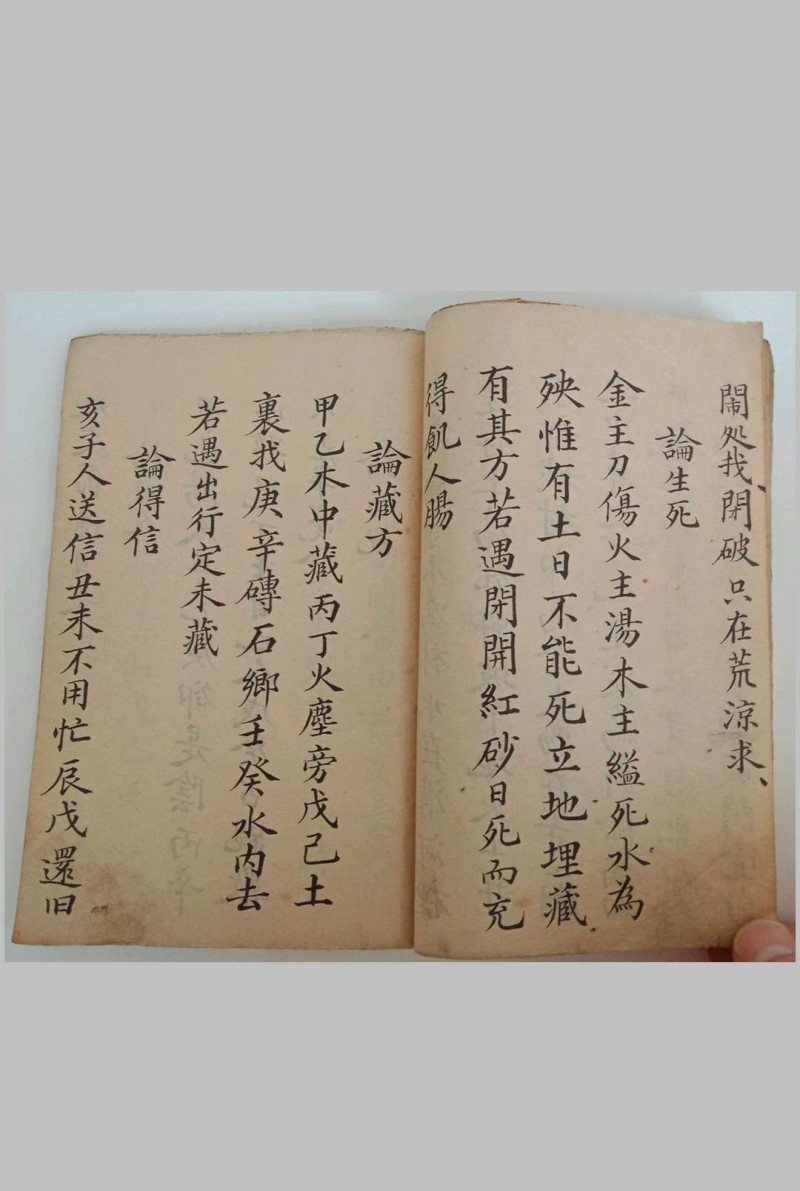 鬧処找、閉破只在荒涼求、
論生死
金主刀傷火主湯木主縊死水為
殃惟有土日不能死立地埋藏
有其方若遇閉開紅砂日死而充
得飢人腸
論藏方
甲乙木中藏丙丁火塵旁戊己土
裏找庚辛磚石鄉壬癸水内去
若遇出行定未藏
論得信
亥子人送信丑未不用忙辰戊還旧